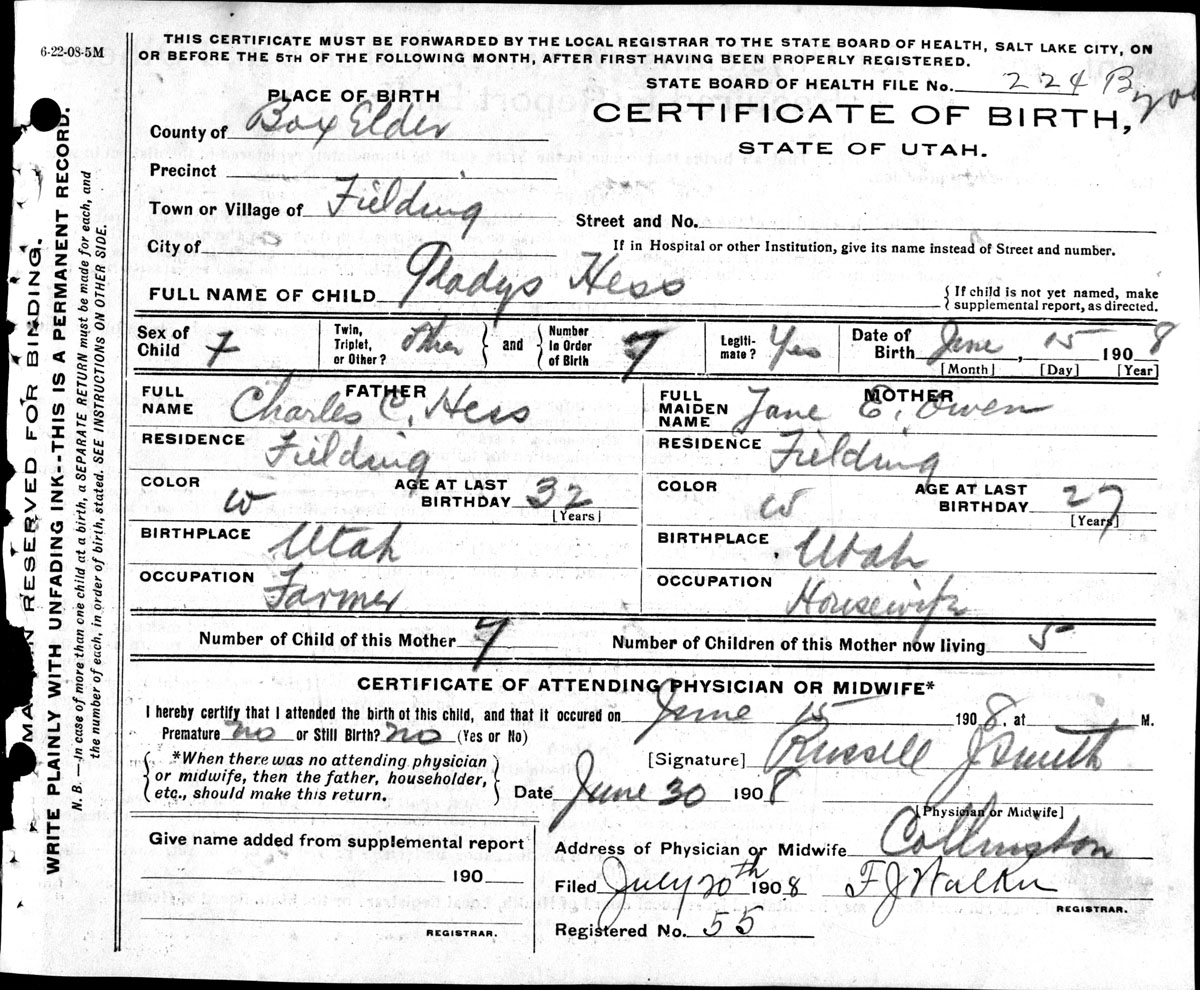 6-22-08-5M
THIS CERTIFICATE MUST BE FORWARDED BY THE LOCAL REGISTRAR TO THE STATE BOARD OF HEALTH, SALT LAKE CITY, ON
OR BEFORE THE 5TH OF THE FOLLOWING MONTH, AFTER FIRST HAVING BEEN PROPERLY REGISTERED.
STATE BOARD OF HEALTH FILE No. 224 B
PLACE OF BIRTH
CERTIFICATE OF BIRTH,
County of Box Elder
STATE OF UTAH.
Precinct
Town or Village of Fielding
Street and No.
City of
If in Hospital or other Institution, give its name instead of Street and number.
FULL NAME OF CHILD Gladys Hess
{ If child is not yet named, make
supplemental report, as directed.
Sex of Child F
Twin, Triplet, or Other?
and
Number in Order of Birth 7
Legitimate? Yes
Date of Birth June, 15 1908
[Month] [Day] [Year]
FATHER
FULL NAME Charles C. Hess
RESIDENCE Fielding
COLOR W
AGE AT LAST BIRTHDAY 32
[Years]
BIRTHPLACE Utah
OCCUPATION Farmer
MOTHER
FULL MAIDEN NAME Jane E. Owen
RESIDENCE Fielding
COLOR W
AGE AT LAST BIRTHDAY 27
[Years]
BIRTHPLACE Utah
OCCUPATION Housewife
Number of Child of this Mother 7
Number of Children of this Mother now living 5
CERTIFICATE OF ATTENDING PHYSICIAN OR MIDWIFE*
I hereby certify that I attended the birth of this child, and that it occured on June 15 1908, at M.
Premature no or Still Birth? no (Yes or No)
*When there was no attending physician
or midwife, then the father, householder,
etc., should make this return.
[Signature] Russell J Smith
Date June 30 1908
[Physician or Midwife]
Give name added from supplemental report
190
REGISTRAR.
Address of Physician or Midwife Collinston
Filed July 20th 1908 F J Walker
REGISTRAR.
Registered No. 55
MARGIN RESERVED FOR BINDING.
WRITE PLAINLY WITH UNFADING INK--THIS IS A PERMANENT RECORD.
N. B. — In case of more than one child at a birth, a SEPARATE RETURN must be made for each, and
the number of each, in order of birth, stated. SEE INSTRUCTIONS ON OTHER SIDE.